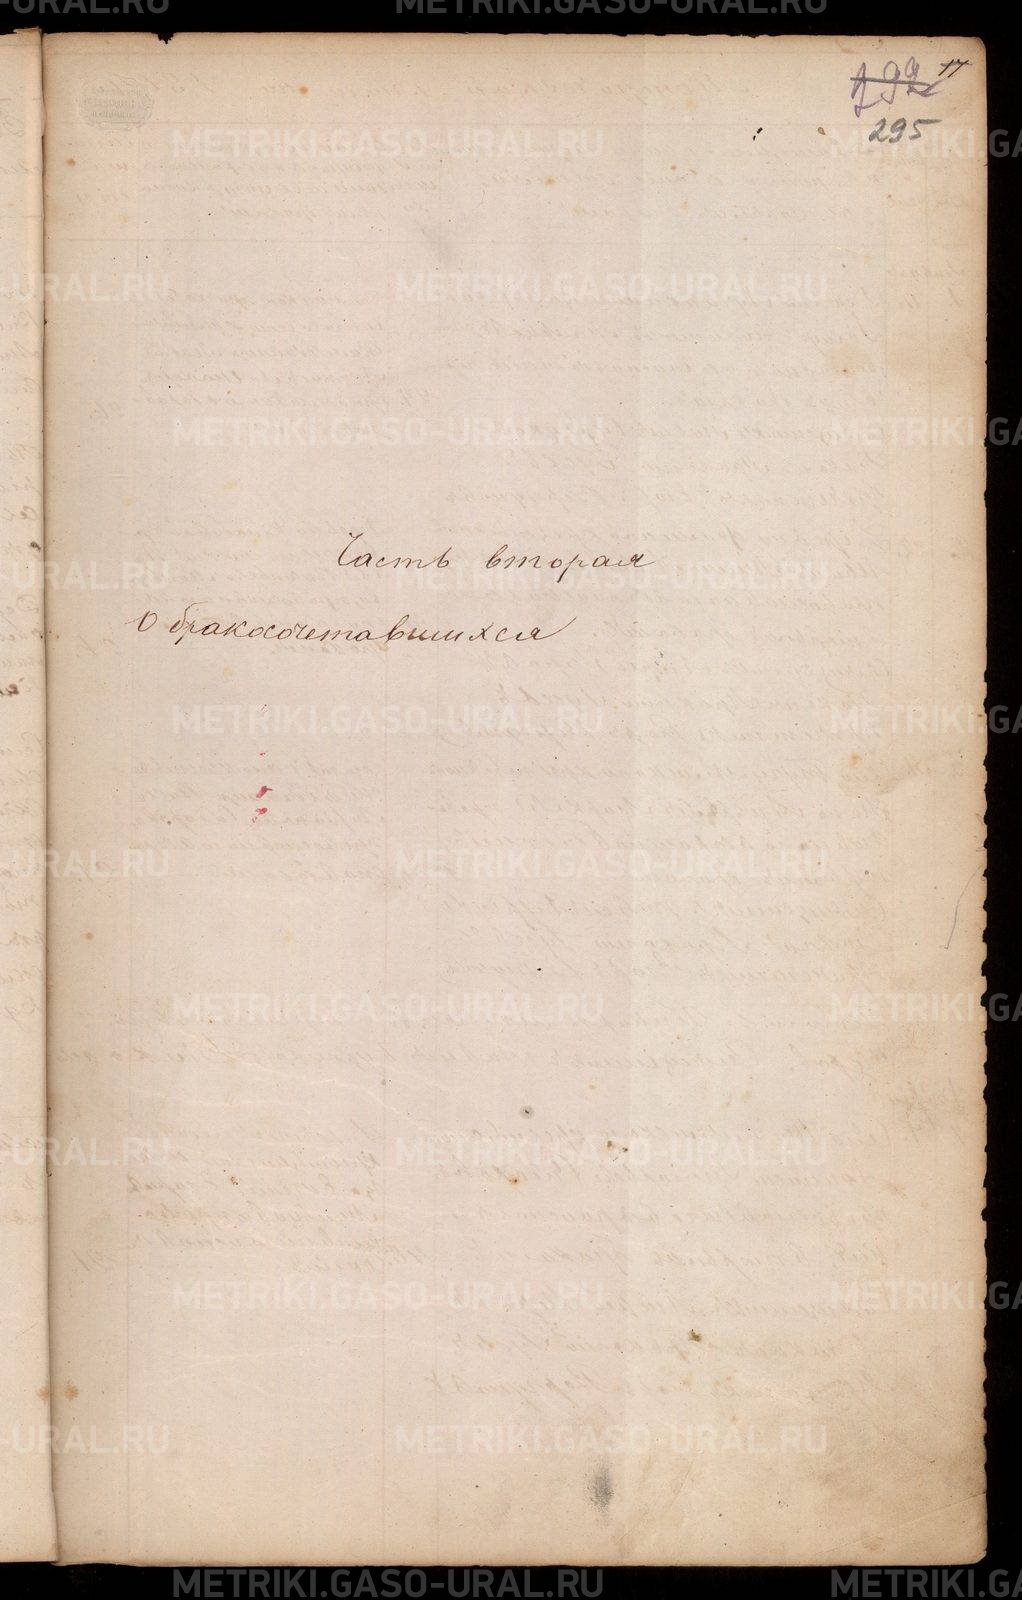 17
295
Часть вторая
О бракосочетавшихся
METRIKI.GASO-URAL.RU